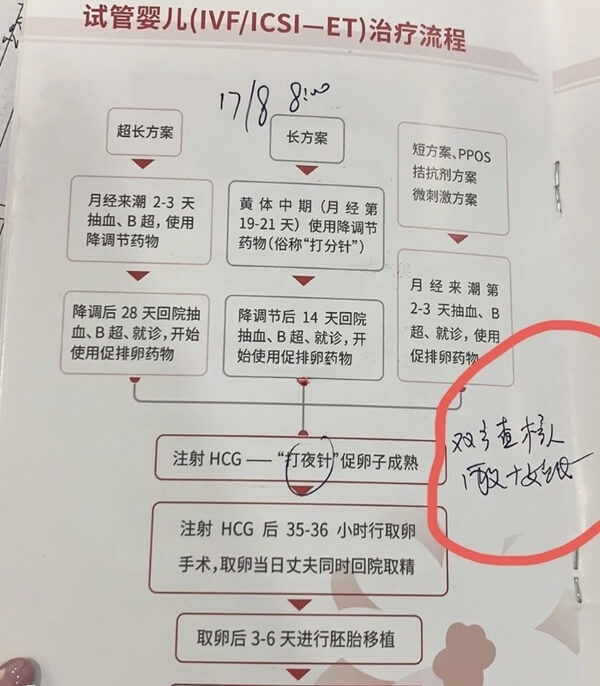 试管婴儿(IVF/ICSI—ET)治疗流程
17/8 8:00
超长方案
长方案
短方案、PPOS
拮抗剂方案
微刺激方案
月经来潮 2-3 天
抽血、B 超，使用
降调节药物
黄体中期（月经第
19-21 天）使用降调节
药物(俗称“打分针”)
月经来潮第
2-3 天抽血、B
超、就诊，使用
促排卵药物
降调后 28 天回院抽
血、B 超、就诊，开始
使用促排卵药物
降调节后 14 天回院
抽血、B 超、就诊，开
始使用促排卵药物
注射 HCG —— “打夜针”促卵子成熟
注射 HCG 后 35-36 小时行取卵
手术，取卵当日丈夫同时回院取精
取卵后 3-6 天进行胚胎移植